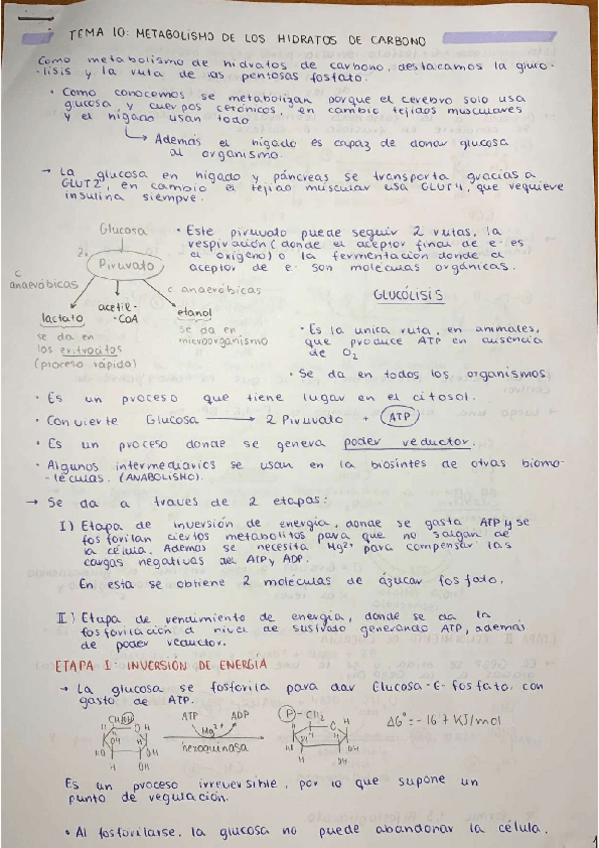 TEMA 10: METABOLISMO DE LOS HIDRATOS DE CARBONO
Como metabolismo de hidratos de carbono, destacamos la gluco-
-lisis y la ruta de las pentosas fosfato.
• Como conocemos se metabolizan porque el cerebro solo usa
glucosa y cuerpos cetónicos, en cambio tejidos musculares
y el hígado usan todo.
↳ Además el hígado es capaz de donar glucosa
al organismo.
→ La glucosa en hígado y páncreas se transporta gracias a
GLUT2, en cambio el tejido muscular usa GLUT4, que requiere
insulina siempre.
Glucosa
2.
Piruvato
c anaeróbicas
c. anaeróbicas
lactato
se da en
los eritrocitos
(proceso rápido)
acetil-
-COA
etanol
se da en
microorganismo
• Este piruvato puede seguir 2 rutas, la
respiración (donde el aceptor final de e- es
el oxígeno) o la fermentación donde el
aceptor de e- son moléculas orgánicas.
GLUCÓLISIS
• Es la unica ruta, en animales,
que produce ATP en ausencia
de O2
• Se da en todos los organismos
• Es un proceso que tiene lugar en el citosol.
• Convierte Glucosa → 2 Piruvato + ATP
• Es un proceso donde se genera poder reductor.
• Algunos intermediarios se usan en la biosintes de otras biomo-
-léculas. (ANABOLISMO).
→ Se da a traves de 2 etapas:
I) Etapa de inversión de energía, donde se gasta ATP y se
fosforilan ciertos metabolitos para que no salgan de
la célula. Ademas se necesita Mg2+ para compensar las
cargas negativas del ATP y ADP.
En esta se obtiene 2 moléculas de ázucar fosfato.
II) Etapa de rendimiento de energía, donde se da la
fosforilación a nivel de sustrado generando ATP, además
de poder reductor.
ETAPA I: INVERSIÓN DE ENERGÍA
→ La glucosa se fosforila para dar Glucosa-6-fosfato, con
gasto de ATP.
ATP ADP
Mg2+
hexoquinasa
P - CH2
ΔG°=-16,7 KJ/mol
Es un proceso irreversible, por lo que supone un
punto de regulación.
• Al fosforilarse, la glucosa no puede abandonar la célula.
1